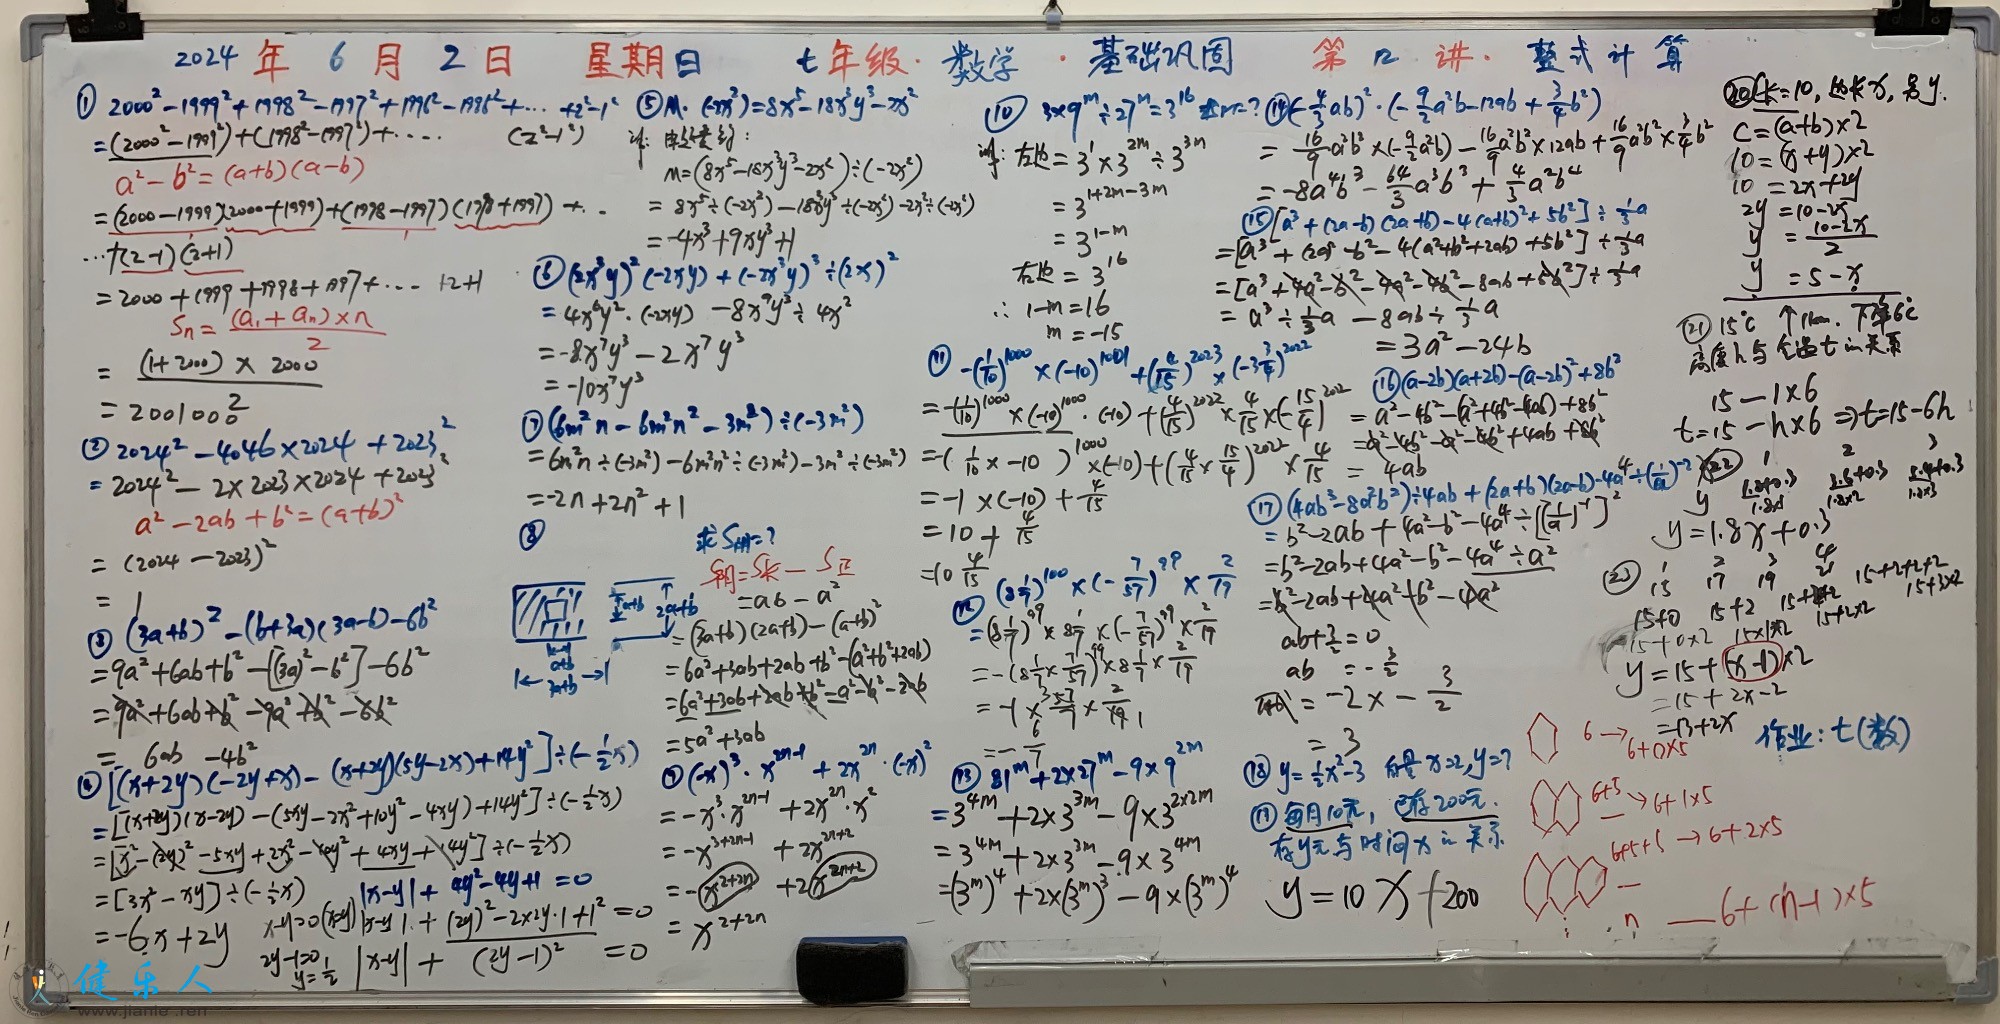 2024年6月2日 星期日 七年级·数学·基础巩固 第12讲·整式计算
① 2000²-1999²+1998²-1997²+1996²-1995²+…+2²-1²
=(2000²-1999²)+(1998²-1997²)+…… (2²-1²)
a²-b²=(a+b)(a-b)
=(2000-1999)(2000+1999)+(1998-1997)(1998+1997)+…
…+(2-1)(2+1)
=2000+1999+1998+1997+… +2+1
Sn=(a₁+an)×n/2
=(1+2000)×2000/2
=2001000
② 2024²-4046×2024+2023²
=2024²-2×2023×2024+2023²
a²-2ab+b²=(a+b)²
=(2024-2023)²
=1
③ (3a+b)²-(b+3a)(3a-b)-6b²
=9a²+6ab+b²-[(3a)²-b²]-6b²
=9a²+6ab+b²-9a²+b²-6b²
=6ab-4b²
④ [(x+2y)(-2y+x)-(x+2y)(5y-2x)+14y²]÷(-½x)
=[(x+2y)(x-2y)-(5xy-2x²+10y²-4xy)+14y²]÷(-½x)
=[x²-(2y)²-5xy+2x²-10y²+4xy+14y²]÷(-½x)
=[3x²-xy]÷(-½x)
=-6x+2y
|x-y|+4y²-4y+1=0
|x-y|+(2y)²-2×2y·1+1²=0
|x-y|+(2y-1)²=0
x-y=0(x=y)
2y-1=0
y=½
⑤ M·(-2x²)=8x⁵-18x³y³-2x²
M=(8x⁵-18x³y³-2x²)÷(-2x²)
=8x⁵÷(-2x²)-18x³y³÷(-2x²)-2x²÷(-2x²)
=-4x³+9xy³+1
⑥ (2x³y)²(-2xy)+(-2x³y)³÷(2x)²
=4x⁶y²·(-2xy)-8x⁹y³÷4x²
=-8x⁷y³-2x⁷y³
=-10x⁷y³
⑦ (6m²n-6m²n²-3m²)÷(-3m²)
=6m²n÷(-3m²)-6m²n²÷(-3m²)-3m²÷(-3m²)
=-2n+2n²+1
⑧ 求S阴=?
a+b 2a+b
a+b
3a+b
S阴=S长-S正
=ab-a²
=(3a+b)(2a+b)-(a+b)²
=6a²+3ab+2ab+b²-(a²+b²+2ab)
=6a²+3ab+2ab+b²-a²-b²-2ab
=5a²+3ab
⑨ (-x)³·x²ⁿ⁻¹+2x²ⁿ·(-x)²
=-x³·x²ⁿ⁻¹+2x²ⁿ·x²
=-x³⁺²ⁿ⁻¹+2x²ⁿ⁺²
=-x²⁺²ⁿ+2x²ⁿ⁺²
=x²⁺²ⁿ
⑩ 3×9ᵐ÷27ᵐ=3¹⁶ 求m=?
解:左边=3¹×3²ᵐ÷3³ᵐ
=3¹⁺²ᵐ⁻³ᵐ
=3¹⁻ᵐ
右边=3¹⁶
∴1-m=16
m=-15
⑪ -(1/10)¹⁰⁰⁰×(-10)¹⁰⁰¹+(4/15)²⁰²³×(-3¾)²⁰²²
=-(1/10)¹⁰⁰⁰×(-10)¹⁰⁰⁰·(-10)+(4/15)²⁰²²×4/15×(-15/4)²⁰²²
=-(1/10×-10)¹⁰⁰⁰×(-10)+(4/15×15/4)²⁰²²×4/15
=-1×(-10)+4/15
=10+4/15
=10 4/15
⑫ (8 1/7)¹⁰⁰×(-7/57)⁹⁹×2/19
=(8 1/7)⁹⁹×8 1/7×(-7/57)⁹⁹×2/19
=-(8 1/7×7/57)⁹⁹×8 1/7×2/19
=-1×57/7×2/19
=-6/7
⑬ 81ᵐ+2×27ᵐ-9×9²ᵐ
=3⁴ᵐ+2×3³ᵐ-9×3²ˣ²ᵐ
=3⁴ᵐ+2×3³ᵐ-9×3⁴ᵐ
=(3ᵐ)⁴+2×(3ᵐ)³-9×(3ᵐ)⁴
⑭ (-4/3ab)²·(-9/2a²b-12ab+3/4b²)
=16/9a²b²×(-9/2a²b)-16/9a²b²×12ab+16/9a²b²×3/4b²
=-8a⁴b³-64/3a³b³+4/3a²b⁴
⑮ [a³+(2a-b)(2a+b)-4(a+b)²+5b²]÷⅓a
=[a³+(2a)²-b²-4(a²+b²+2ab)+5b²]÷⅓a
=[a³+4a²-b²-4a²-4b²-8ab+5b²]÷⅓a
=a³÷⅓a-8ab÷⅓a
=3a²-24b
⑯ (a-2b)(a+2b)-(a-2b)²+8b²
=a²-4b²-(a²+4b²-4ab)+8b²
=a²-4b²-a²-4b²+4ab+8b²
=4ab
⑰ (4ab³-8a²b²)÷4ab+(2a+b)(2a-b)-4a⁴÷(1/a)⁻²
=b²-2ab+4a²-b²-4a⁴÷[(1/a)⁻¹]²
=b²-2ab+4a²-b²-4a⁴÷a²
=b²-2ab+4a²-b²-4a²
ab+3/2=0
ab=-3/2
=-2×-3/2
=3
⑱ y=½x²-3 x=2,y=?
⑲ 每月10元,已存200元.
存y元与时间x的关系
y=10x+200
⑳ C长=10,边长x,另y.
C=(a+b)×2
10=(x+y)×2
10=2x+2y
2y=10-2x
y=10-2x/2
y=5-x
㉑ 15℃ ↑1km.下降6℃
高度h与气温t的关系
15-1×6
t=15-h×6⇒t=15-6h
㉒ x 1 2 3
y 1.8+0.3 3.6+0.3 5.4+0.3
1.8×1 1.8×2 1.8×3
y=1.8x+0.3
㉓ 1 2 3 4
15 17 19 21
15+0 15+2 15+2+2 15+2+2+2
15+0×2 15+1×2 15+2×2 15+3×2
y=15+(x-1)×2
=15+2x-2
=13+2x
作业:七(数)
6→6+0×5
6+5→6+1×5
6+5+5→6+2×5
n—6+(n-1)×5
健乐人
www.jianle.ren